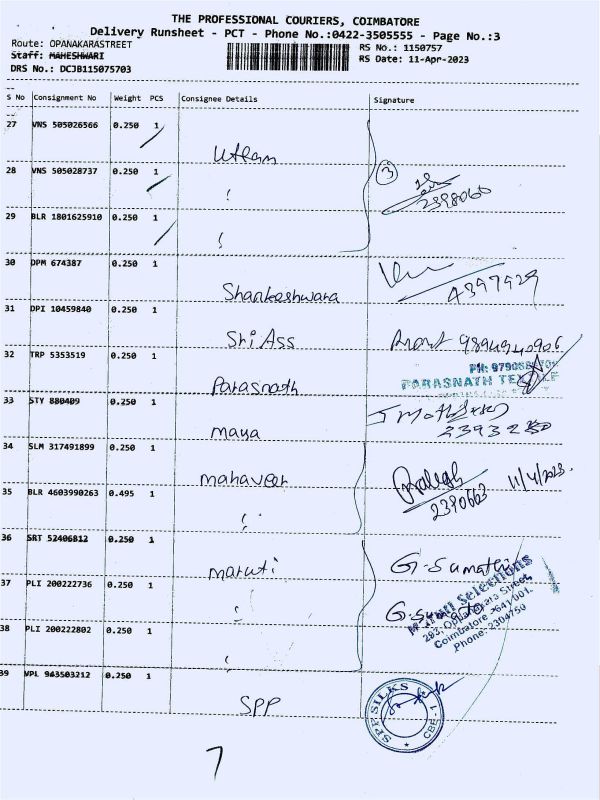 THE PROFESSIONAL COURIERS, COIMBATORE
Delivery Runsheet - PCT - Phone No.:0422-3505555 - Page No.:3
Route: OPANAKARASTREET
RS No.: 1150757
Staff: MAHESHWARI
RS Date: 11-Apr-2023
DRS No.: DCJB115075703
S No Consignment No Weight PCS Consignee Details Signature
27 VNS 505026566 0.250 1
Uttam
28 VNS 505028737 0.250 1
3
2398060
29 BLR 1801625910 0.250 1
30 DPM 674387 0.250 1
Shankeshwara
4397929
31 DPI 10459840 0.250 1
Sri Ass
9894940906
32 TRP 5353519 0.250 1
Parasnath
PARASNATH
33 STY 880409 0.250 1
Maya
34 SLM 317491899 0.250 1
mahaveer
11/4/2023.
35 BLR 4603990263 0.495 1
2390663
36 SRT 52406812 0.250 1
maruti
G. Sumathi
37 PLI 200222736 0.250 1
Selections
283, Oppanakara Street
Coimbatore - 641 001.
Phone: 2304750
38 PLI 200222802 0.250 1
39 VPL 943503212 0.250 1
SPP
SPP SILKS
CBE-1
7